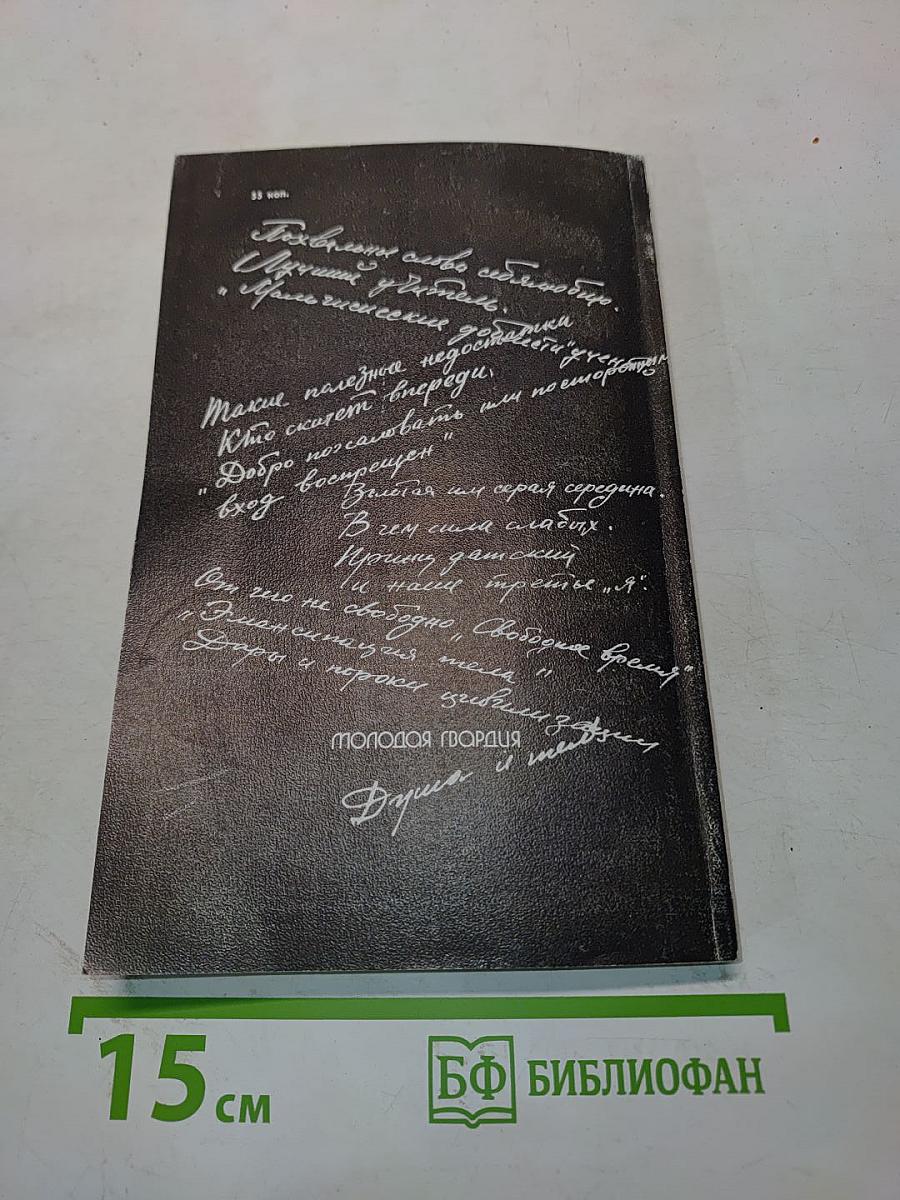 55 коп.
Похвальное слово себялюбию.
Лучший учитель.
"Мальчишеские добавки
Такие полезные недостатки
ести" учен
Кто скачет впереди.
"Добро пожаловать или посторонним
вход воспрещен"
Золотая или серая середина.
В чем сила слабых.
Принц датский
и наше третье „я".
От чего не свободно „Свободное время"
„Эмансипация тела"
Дары и пороки цивилизации
МОЛОДАЯ ГВАРДИЯ
Душа и тело
15 см
БФ БИБЛИОФАН